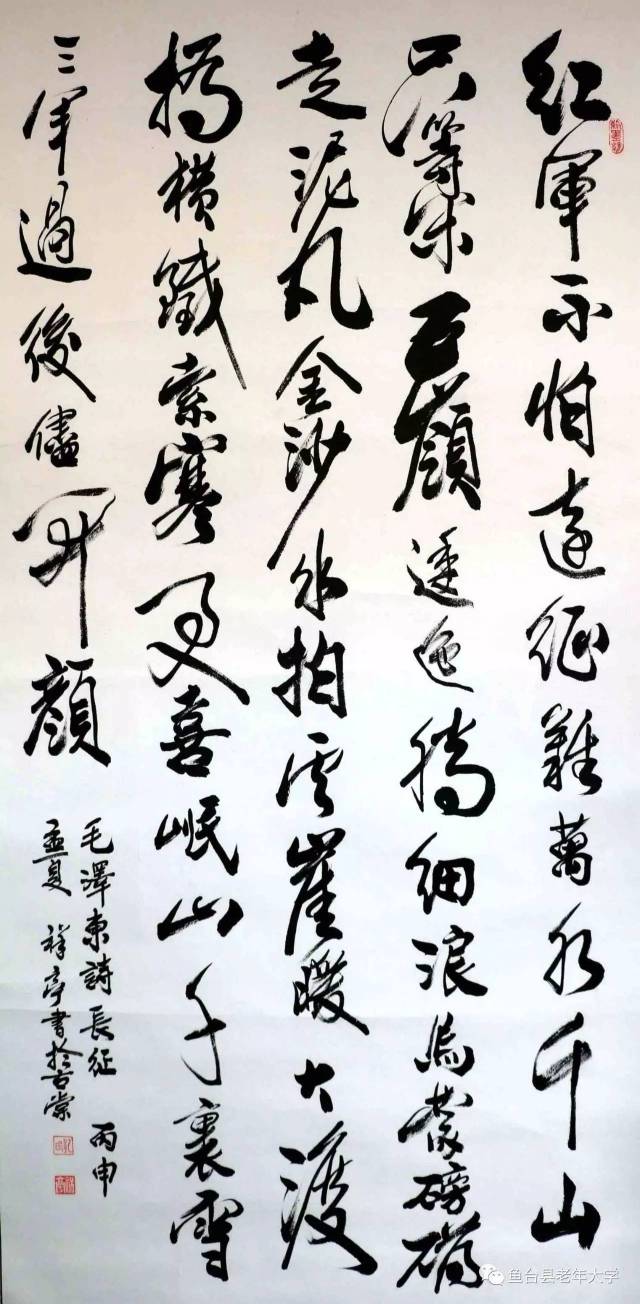 红军不怕遠征難萬水千山
只等闲五嶺逶迤腾細浪烏蒙磅礴
走泥丸金沙水拍雲崖暖大渡
橋横鐵索寒更喜岷山千裏雪
三軍過後儘開顔
毛澤東詩長征 丙申
孟夏 祥亭書於古棠
鱼台县老年大学